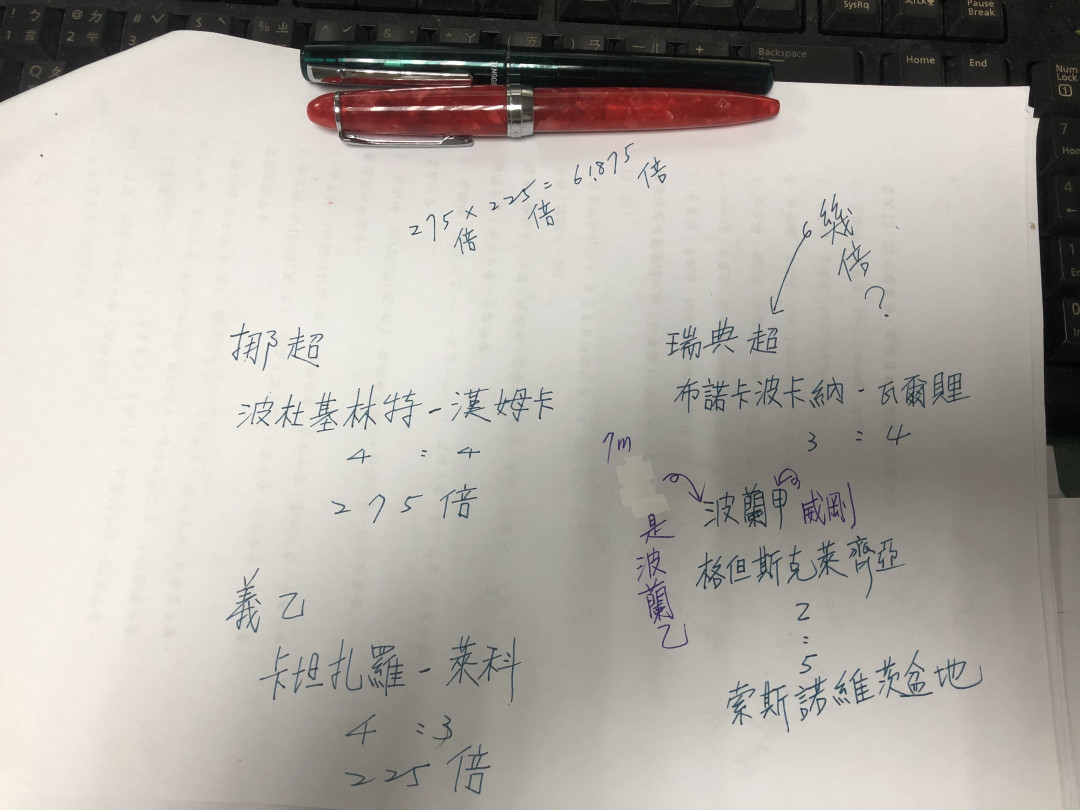 SysRq
ScrLk
Pause
Break
Backspace
Home
End
Num
Lock
275倍 × 225倍 = 61,875 倍
幾倍?
挪超
波杜基林特-漢姆卡
4 : 4
275倍
義乙
卡坦扎羅-萊科
4 : 3
225倍
瑞典超
布諾卡波卡納-瓦爾貝里
3 : 4
7m
是波蘭乙
波蘭甲 威剛
格但斯克萊齊亞
2
:
5
索斯諾維茨盆地